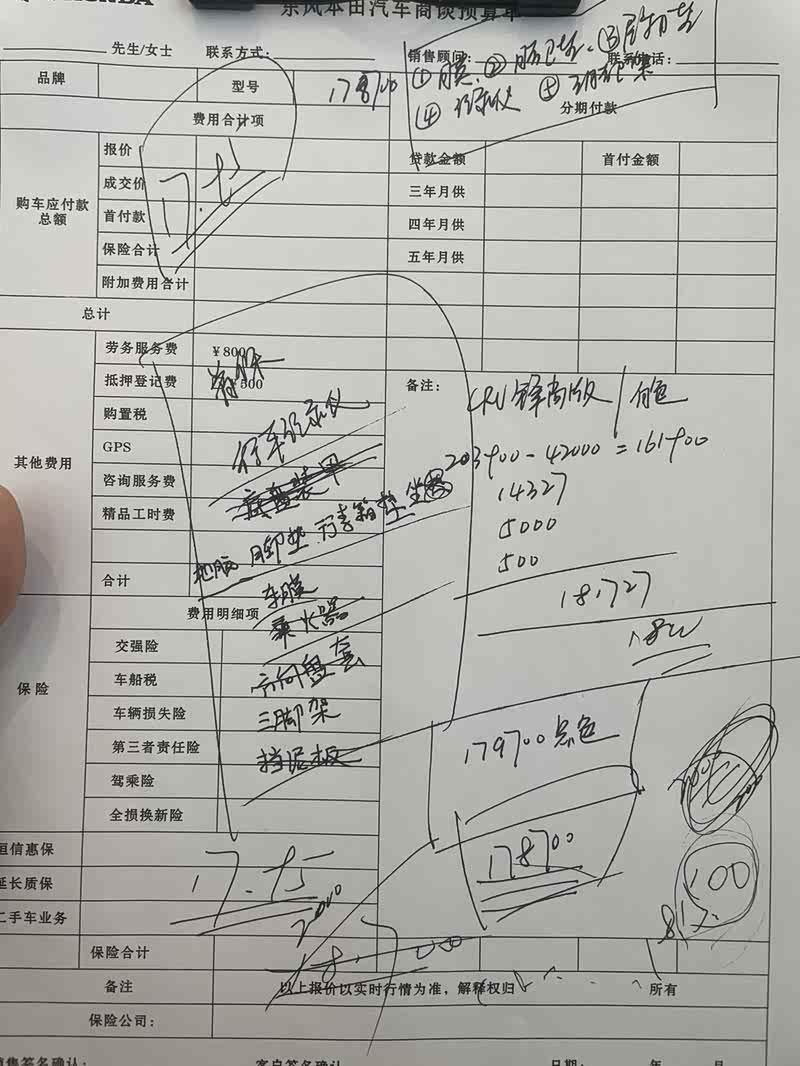 东风本田汽车商谈预算单
先生/女士 联系方式： 销售顾问： 联系电话：
① 膜 ②
④ 记录仪 ⑤
品牌 型号 178700
分期付款
费用合计项
报价
贷款金额 首付金额
购车应付款总额
成交价
三年月供
首付款
四年月供
保险合计
五年月供
附加费用合计
17.85
总计
其他费用
劳务服务费 ¥800
抵押登记费 ¥500
备注：
购置税
GPS
咨询服务费
精品工时费
合计
行车记录仪
底盘装甲
地胶 脚垫 后备箱垫 坐垫
车膜
乘火器
方向盘套
三脚架
挡泥板
CRV 锋尚版 / 白色
203900-42000=161900
14327
5000
500
181727
18W
179700 黑色
178700
100
费用明细项
保险
交强险
车船税
车辆损失险
第三者责任险
驾乘险
全损换新险
恒信惠保
延长质保
二手车业务
17.85
2000
保险合计
备注 以上报价以实时行情为准，解释权归 所有
保险公司：
销售签名确认： 客户签名确认 日期： 年 月